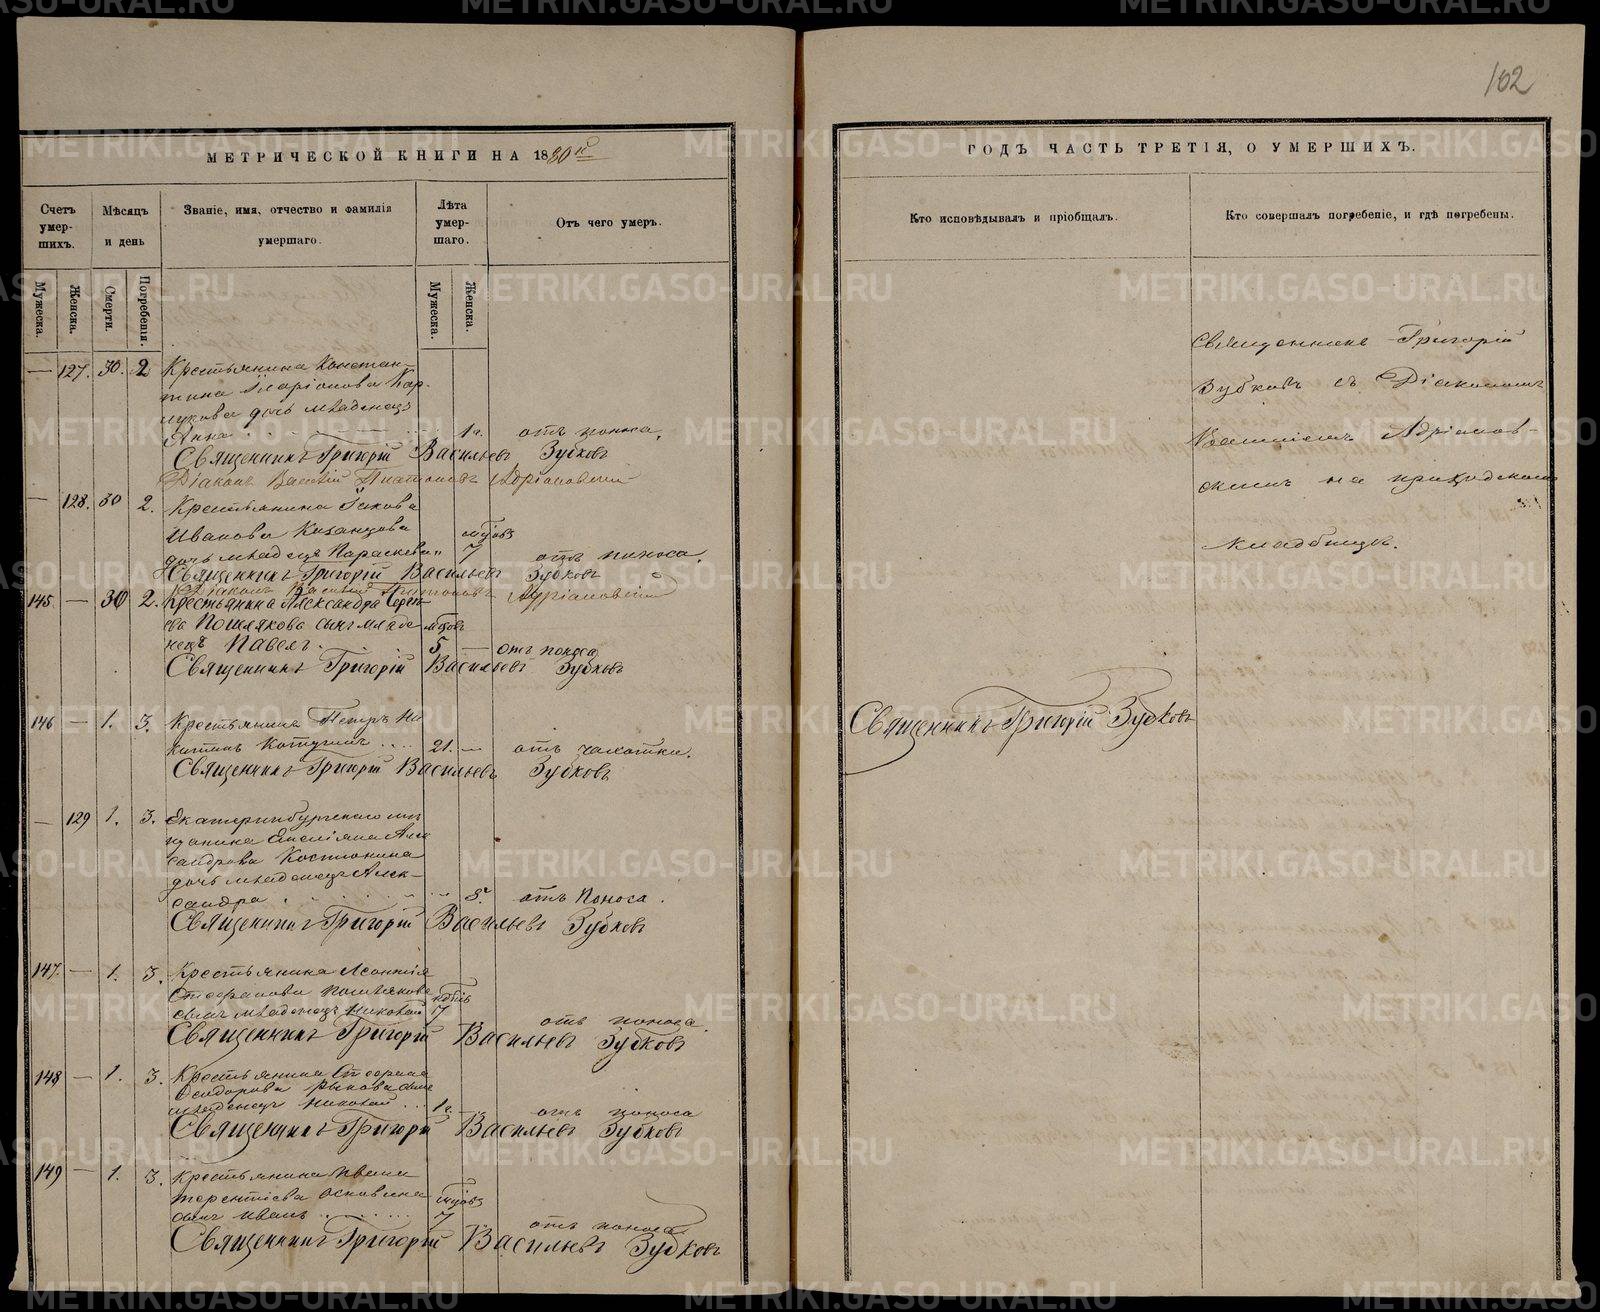 102
МЕТРИЧЕСКОЙ КНИГИ НА 1880й
ГОДЪ ЧАСТЬ ТРЕТІЯ, О УМЕРШИХЪ.
Счетъ умершихъ.
Мѣсяцъ и день
Званіе, имя, отчество и фамилія умершаго.
Лѣта умершаго.
Отъ чего умеръ.
Кто исповѣдывалъ и пріобщалъ.
Кто совершалъ погребеніе, и гдѣ погребены.
Мужеска.
Женска.
Смерти.
Погребенія.
Мужеска.
Женска.
— 127. 30. 2 Крестьянина Констан-
тина Иларіонова Кар-
пукова дочь младенецъ
Анна 1 г. отъ поноса.
Священникъ Григорій Васильевъ Зубковъ
Діаконъ Василій Платоновъ Адріановскій
— 128. 30 2. Крестьянина Іакова
Иванова Казанцова мѣсяцъ
дочь младенецъ Параскева 7 отъ поноса.
Священникъ Григорій Васильевъ Зубковъ
Діаконъ Василій Платоновъ Адріановскій
145 — 30 2. Крестьянина Александра Сергѣ
ева Пошлякова сынъ младе
нецъ Павелъ. 5 — отъ поноса
Священникъ Григорій Васильевъ Зубковъ
146 — 1. 3. Крестьянинъ Петръ Ни
китинъ 21. — отъ чахотки.
Священникъ Григорій Васильевъ Зубковъ
— 129 1. 3. Екатеринбургскаго мѣ
щанина Емеліяна Алек
сандрова Костюнина
дочь младенецъ Алек-
сандра 3. отъ поноса.
Священникъ Григорій Васильевъ Зубковъ
147. — 1. 3. Крестьянина Леонтія
Стефанова Пошлякова
сынъ младенецъ Николай 17 отъ поноса.
Священникъ Григорій Васильевъ Зубковъ
148 — 1. 3. Крестьянина Стефана
Ѳеодорова Рыкова сынъ
младенецъ Николай 1 г. отъ поноса
Священникъ Григорій Васильевъ Зубковъ
149 — 1. 3. Крестьянина Ивана
Терентіева
сынъ Иванъ 7 отъ поноса
Священникъ Григорій Васильевъ Зубковъ
Священникъ Григорій Зубковъ
Священникъ Григорій
Зубковъ съ Діакономъ
Василіемъ Адріанов-
скимъ на приходскомъ
кладбищѣ.
METRIKI.GASO-URAL.RU